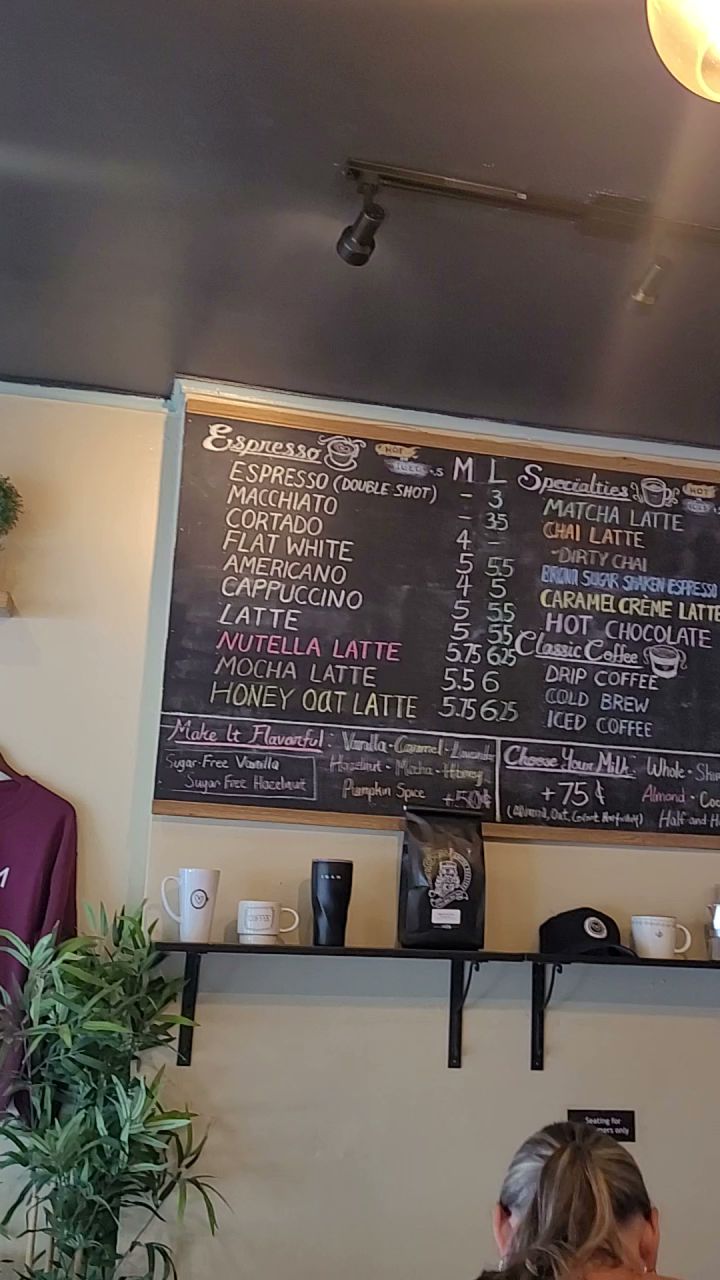 Espresso HOT ICED +.5 M L
ESPRESSO (DOUBLE SHOT) - 3
MACCHIATO - 3.5
CORTADO 4 -
FLAT WHITE 5 5.5
AMERICANO 4 5
CAPPUCCINO 5 5.5
LATTE 5 5.5
NUTELLA LATTE 5.75 6.25
MOCHA LATTE 5.5 6
HONEY OAT LATTE 5.75 6.25
Specialties HOT
MATCHA LATTE
CHAI LATTE
-DIRTY CHAI
BROWN SUGAR SHAKEN ESPRESSO
CARAMEL CRÈME LATTE
HOT CHOCOLATE
Classic Coffee
DRIP COFFEE
COLD BREW
ICED COFFEE
Make It Flavorful: Vanilla · Caramel · Lavender
Hazelnut · Mocha · Honey
Pumpkin Spice +.50¢
Sugar-Free Vanilla
Sugar Free Hazelnut
Choose Your Milk: Whole ·
+75¢ Almond ·
Half and
COFFEE
Seating for
only